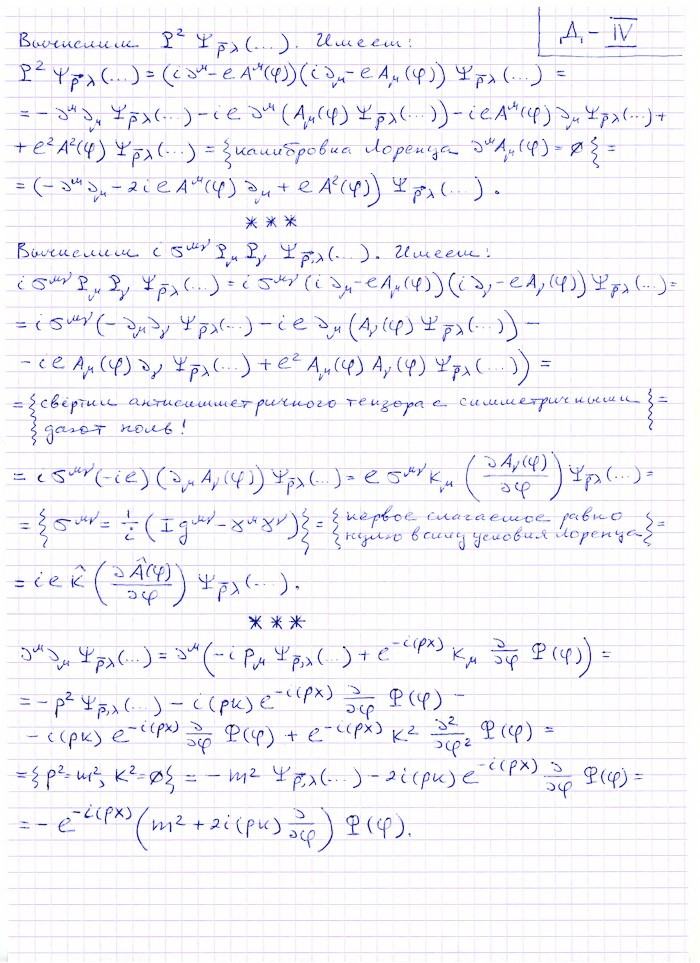 Д₁ – IV
Вычислим P² Ψ_p̄λ(...). Имеем:
P² Ψ_p̄λ(...) = (i∂^μ – eA^μ(φ))(i∂_μ – eA_μ(φ)) Ψ_p̄λ(...) =
= –∂^μ∂_μ Ψ_p̄λ(...) – ie ∂^μ(A_μ(φ) Ψ_p̄λ(...)) – ieA^μ(φ) ∂_μ Ψ_p̄λ(...) +
+ e²A²(φ) Ψ_p̄λ(...) = {калибровка Лоренца ∂^μA_μ(φ) = ∅} =
= (–∂^μ∂_μ – 2ieA^μ(φ) ∂_μ + eA²(φ)) Ψ_p̄λ(...).
* * *
Вычислим i σ^μν P_μ P_ν Ψ_p̄,λ(...). Имеем:
i σ^μν P_μ P_ν Ψ_p̄λ(...) = i σ^μν (i∂_μ – eA_μ(φ))(i∂_ν – eA_ν(φ)) Ψ_p̄λ(...) =
= i σ^μν (–∂_μ∂_ν Ψ_p̄λ(...) – ie ∂_μ(A_ν(φ) Ψ_p̄λ(...)) –
– ie A_μ(φ) ∂_ν Ψ_p̄λ(...) + e² A_μ(φ) A_ν(φ) Ψ_p̄λ(...)) =
= {свёртки антисимметричного тензора с симметричными =
дают ноль!}
= i σ^μν (–ie) (∂_μ A_ν(φ)) Ψ_p̄λ(...) = e σ^μν k_μ (∂A_ν(φ)/∂φ) Ψ_p̄λ(...) =
= {σ^μν = 1/i (I g^μν – γ^μ γ^ν)} = {первое слагаемое равно
нулю в силу условия Лоренца} =
= ie k̂ (∂Â(φ)/∂φ) Ψ_p̄λ(...).
* * *
∂^μ∂_μ Ψ_p̄λ(...) = ∂^μ(–i p_μ Ψ_p̄,λ(...) + e^–i(px) k_μ ∂/∂φ Φ(φ)) =
= –p² Ψ_p̄,λ(...) – i(pk) e^–i(px) ∂/∂φ Φ(φ) –
– i(pk) e^–i(px) ∂/∂φ Φ(φ) + e^–i(px) k² ∂²/∂φ² Φ(φ) =
= {p² = m², k² = ∅} = –m² Ψ_p̄,λ(...) – 2i(pk) e^–i(px) ∂/∂φ Φ(φ) =
= –e^–i(px) (m² + 2i(pk) ∂/∂φ) Φ(φ).